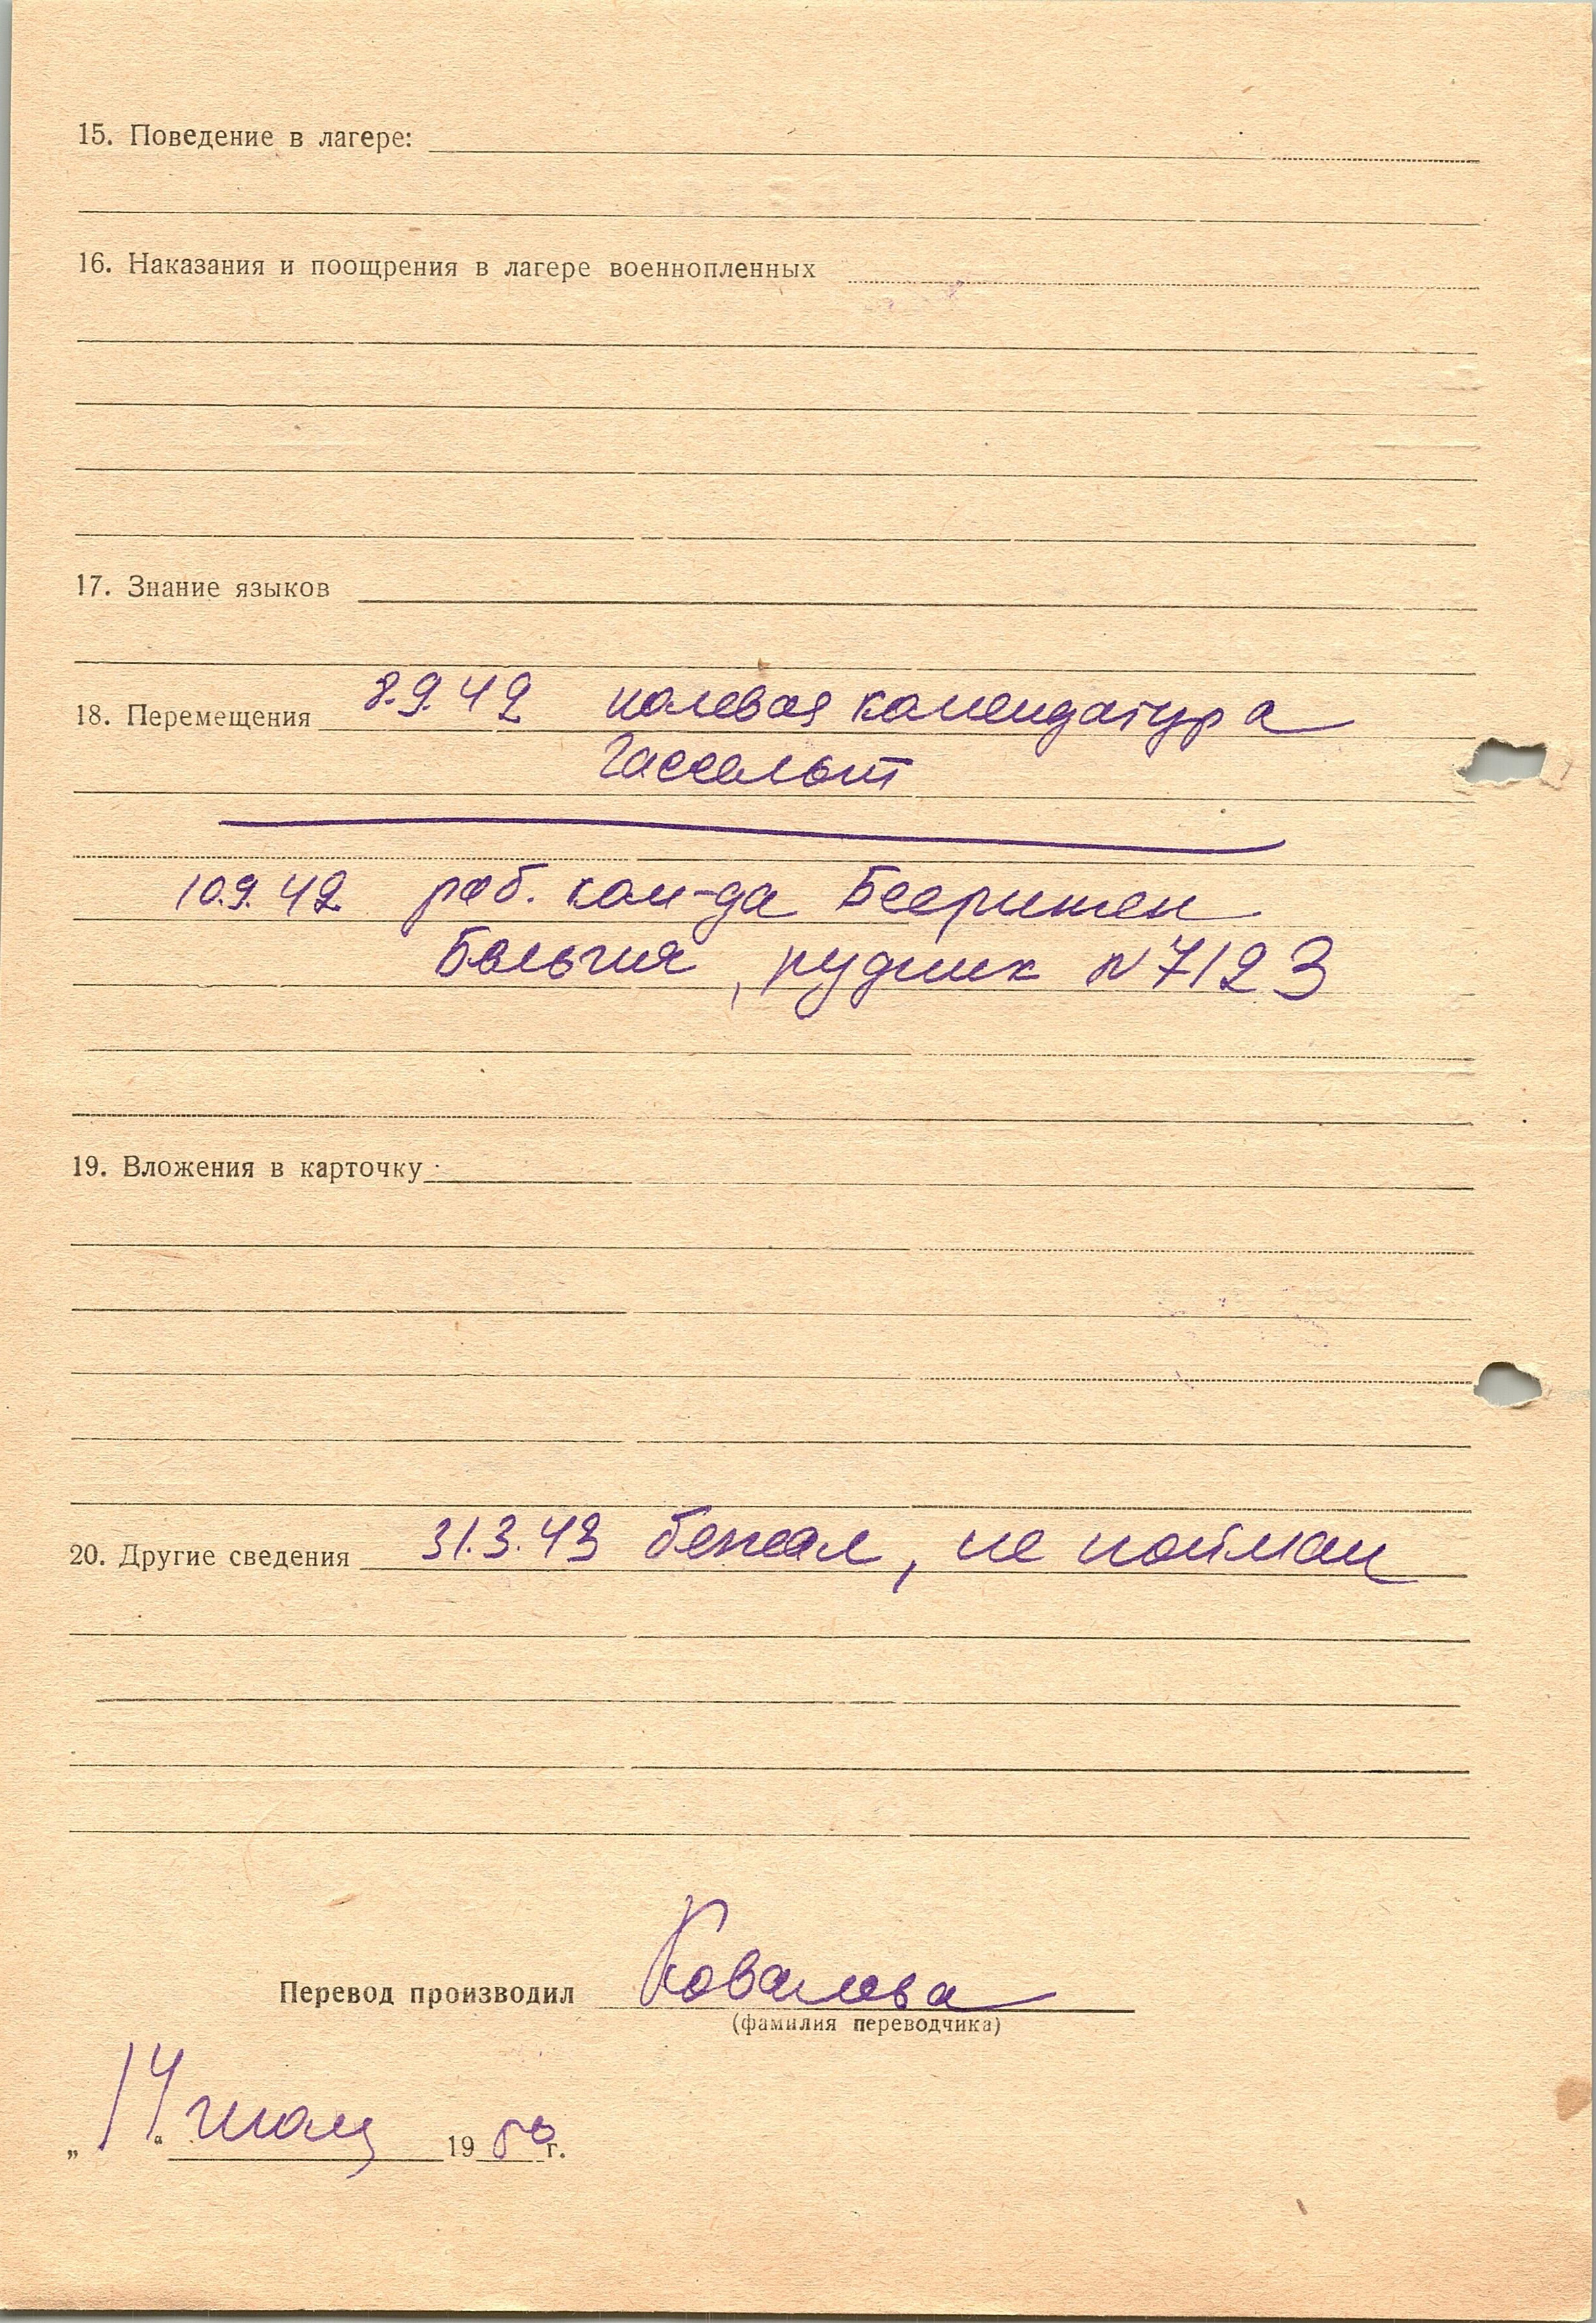 15. Поведение в лагере:
16. Наказания и поощрения в лагере военнопленных
17. Знание языков
18. Перемещения 8.9.42 полевая комендатура
Гассельт
10.9.42 раб. ком-да Бееринген
Бельгия, рудник N 7123
19. Вложения в карточку
20. Другие сведения 31.3.43 бежал, не пойман
Перевод производил Ковалева
(фамилия переводчика)
„14“ 19 50 г.